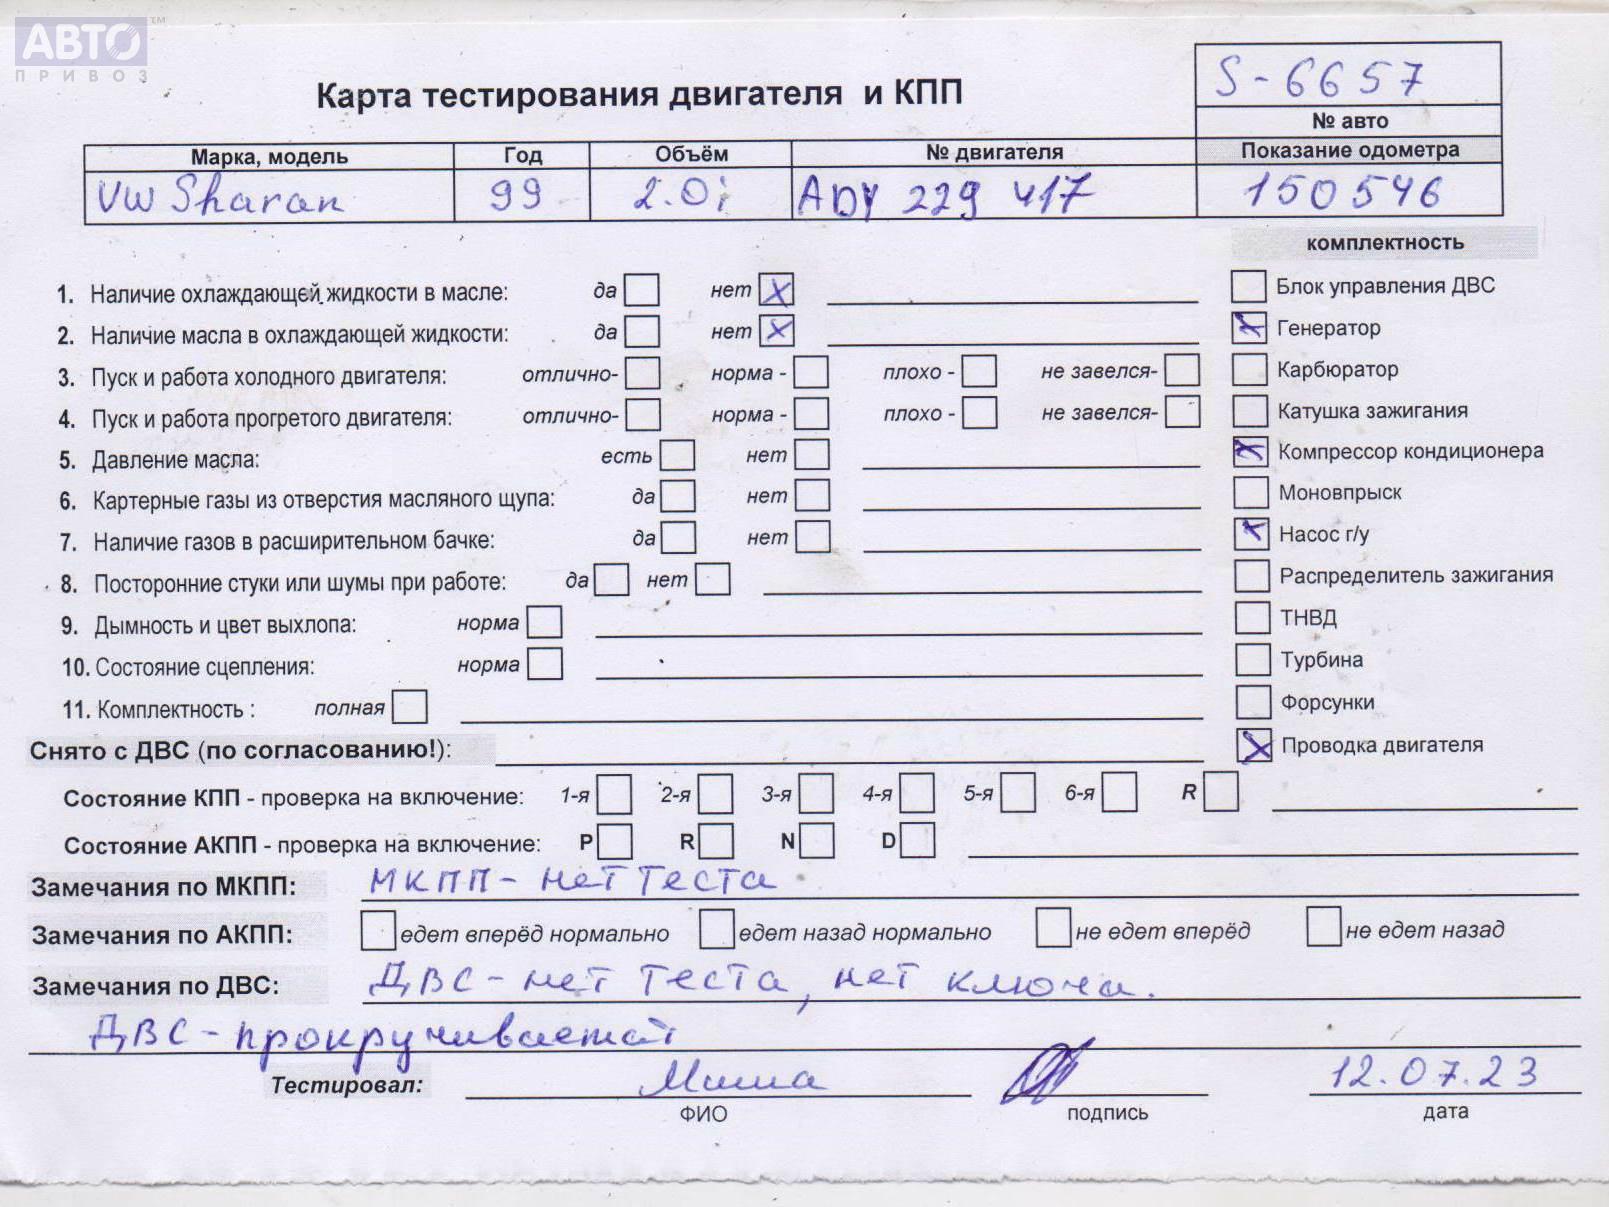 АВТО™
ПРИВОЗ
S-6657
Карта тестирования двигателя и КПП
№ авто
Марка, модель Год Объём № двигателя Показание одометра
VW Sharan 99 2.0i ADY 229 417 150546
комплектность
1. Наличие охлаждающей жидкости в масле: да нет X
Блок управления ДВС
2. Наличие масла в охлаждающей жидкости: да нет X
X Генератор
3. Пуск и работа холодного двигателя: отлично- норма - плохо - не завелся-
Карбюратор
4. Пуск и работа прогретого двигателя: отлично- норма - плохо - не завелся-
Катушка зажигания
5. Давление масла: есть нет
X Компрессор кондиционера
6. Картерные газы из отверстия масляного щупа: да нет
Моновпрыск
7. Наличие газов в расширительном бачке: да нет
X Насос г/у
8. Посторонние стуки или шумы при работе: да нет
Распределитель зажигания
9. Дымность и цвет выхлопа: норма
ТНВД
10. Состояние сцепления: норма
Турбина
11. Комплектность : полная
Форсунки
Снято с ДВС (по согласованию!):
X Проводка двигателя
Состояние КПП - проверка на включение: 1-я 2-я 3-я 4-я 5-я 6-я R
Состояние АКПП - проверка на включение: P R N D
Замечания по МКПП: МКПП - нет теста
Замечания по АКПП: едет вперёд нормально едет назад нормально не едет вперёд не едет назад
Замечания по ДВС: ДВС - нет теста, нет ключа.
ДВС - прокручивается
Тестировал: Миша 12.07.23
ФИО подпись дата